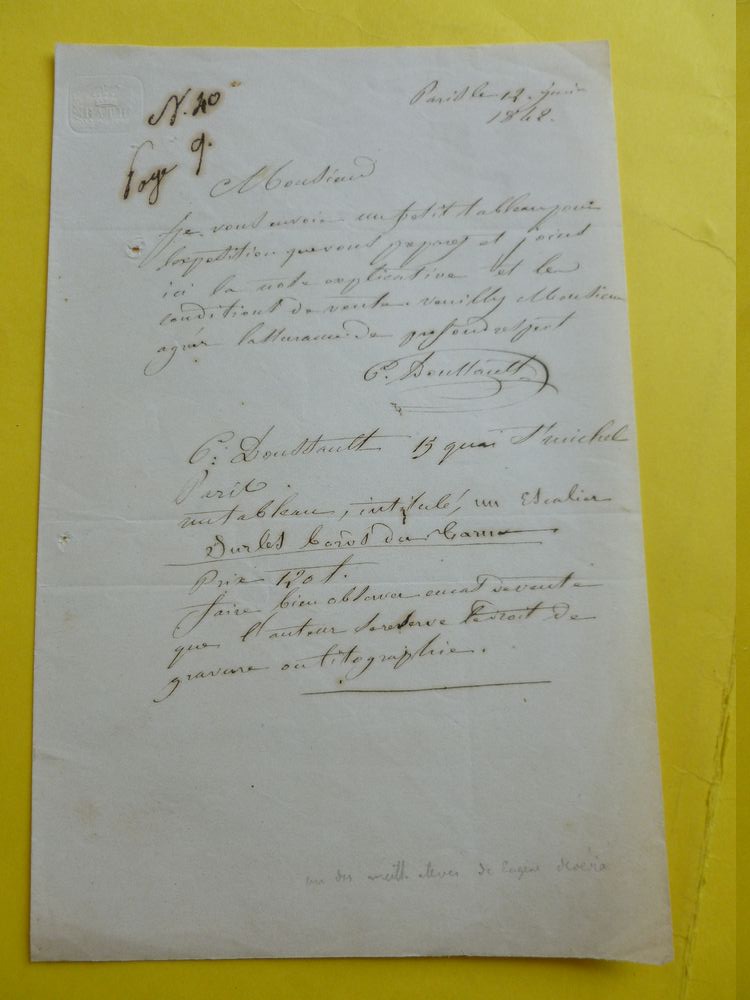 N. 40
Page 9.
Paris le 12. juin
1842.
Monsieur
je vous envoie un petit tableau pour
lexposition que vous preparez et joins
ici la note explicative et les
conditions de vente. veuillez Monsieur
agréer lassurance de profond respect
C. Doussault
C. Doussault 15 quai St michel
Paris.
un tableau, intitulé, un Escalier
Sur les bords du
Prix 120 f.
faire bien observer en cas de vente
que l'auteur se reserve le droit de
gravure ou litographie.
un des meill eleves de Eugene deveria